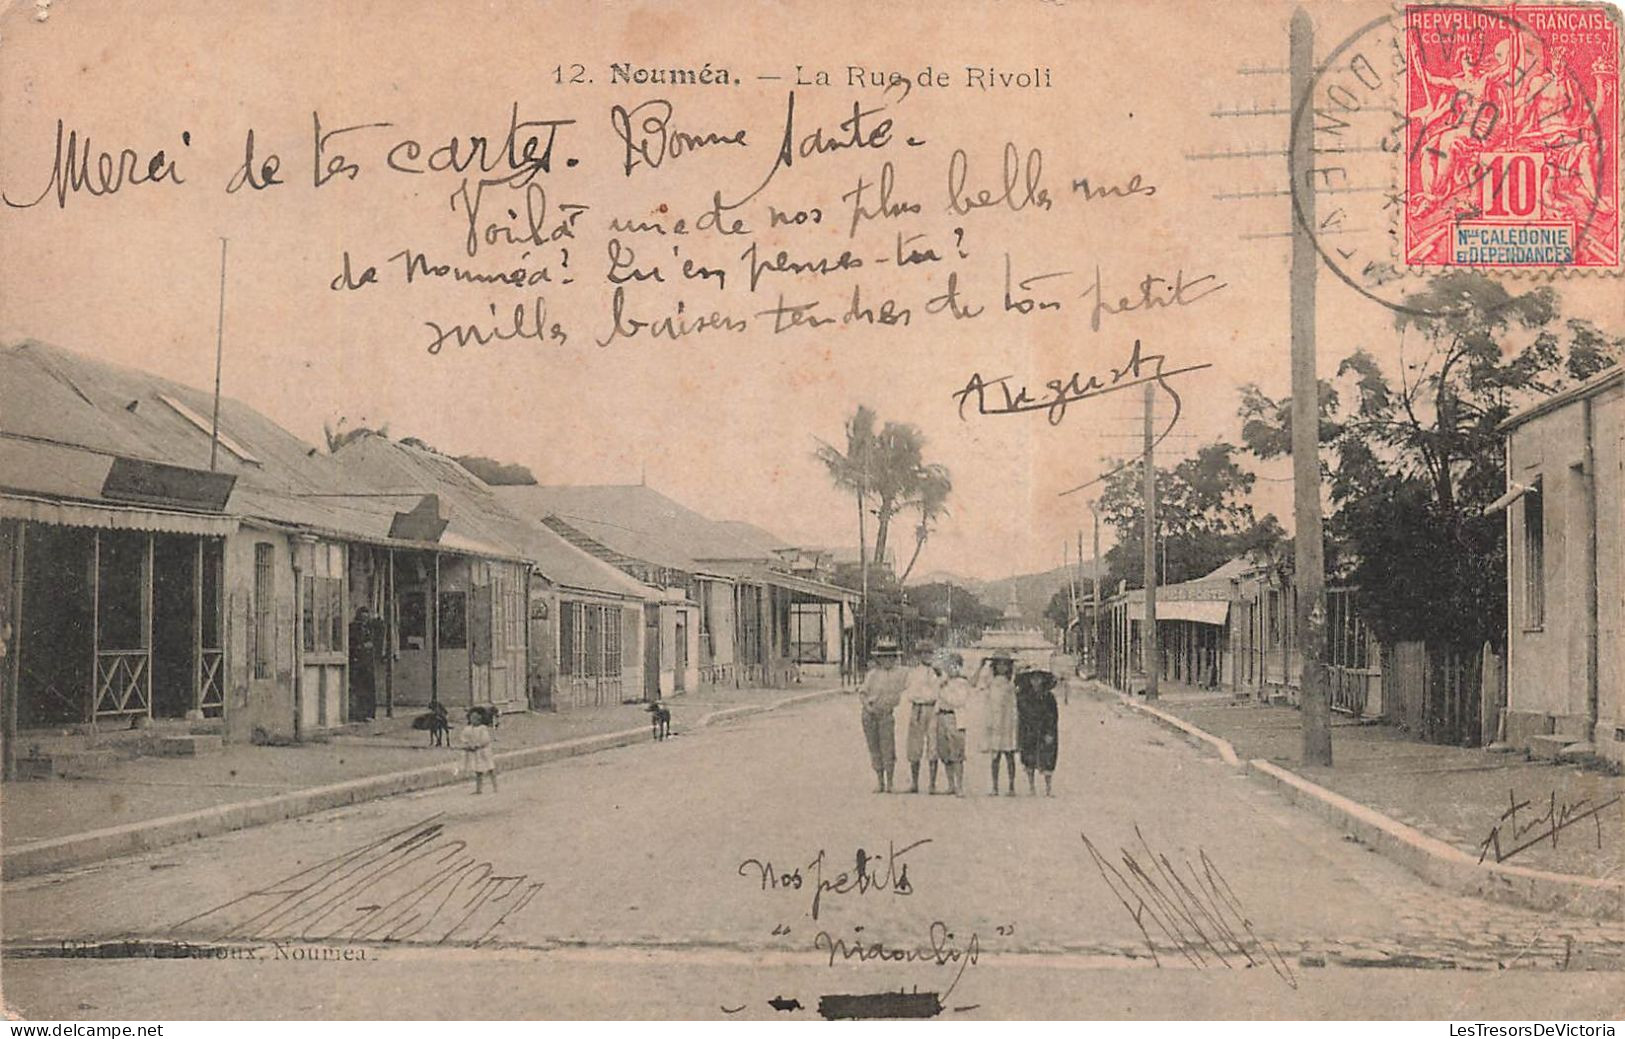 12. Nouméa. — La Rue de Rivoli
REPVBLIQVE FRANÇAISE
COLONIES POSTES
10
Nlle CALÉDONIE
ET DÉPENDANCES
NOUMEA
Nlle CALEDONIE
Merci de tes cartes. Bonne Santé.
Voilà une de nos plus belles rues
de Nouméa? Qu'en penses-tu?
mille baisers tendres de ton petit
Auguste
AUGUSTE
Nos petits
"Niaoulis"
ANNE
Edit. Vve Daroux, Nouméa.
LesTresorsDeVictoria